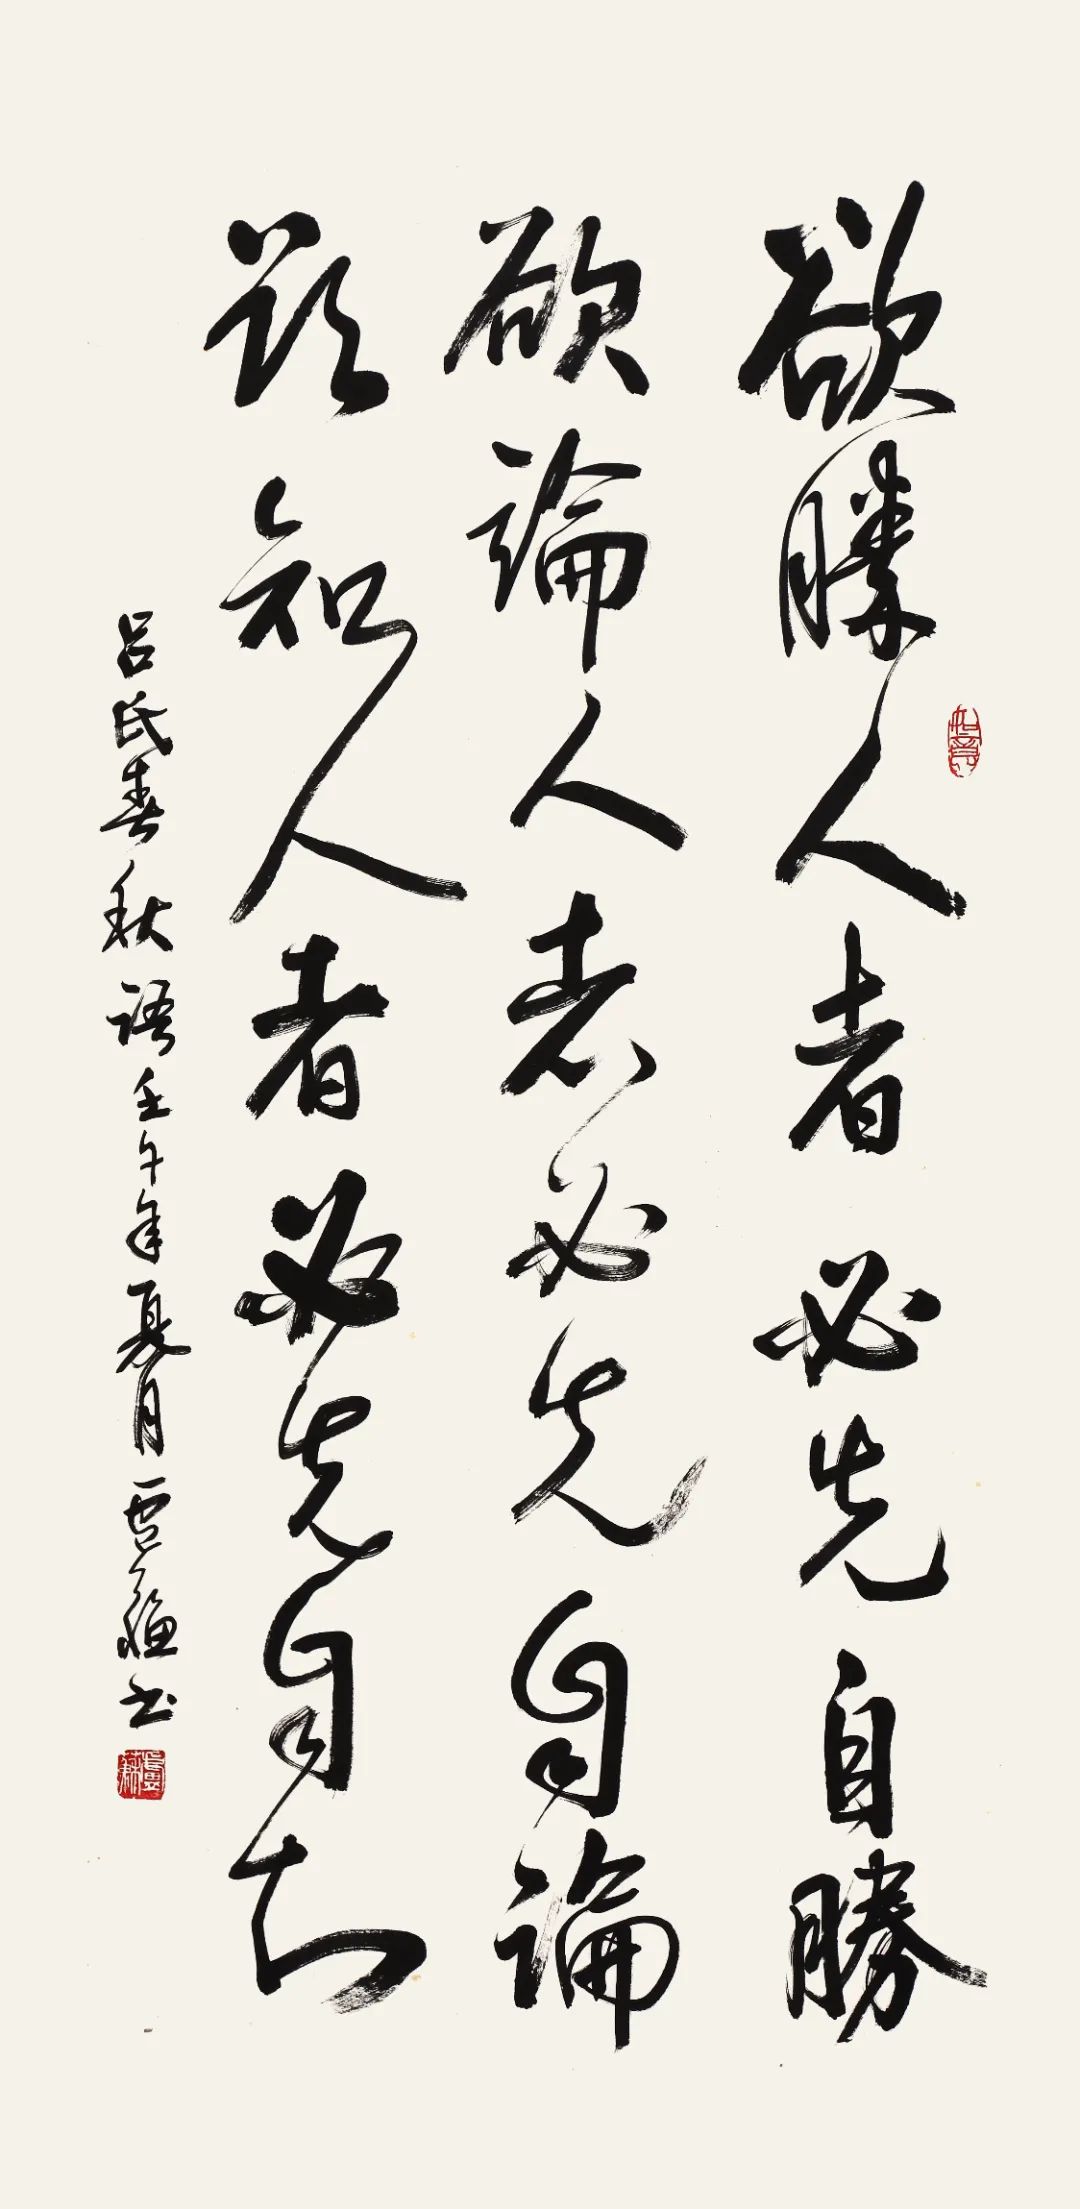 欲勝人者必先自勝
欲論人者必先自論
欲知人者必先自知
呂氏春秋語壬午年夏月賈蘊書
如意